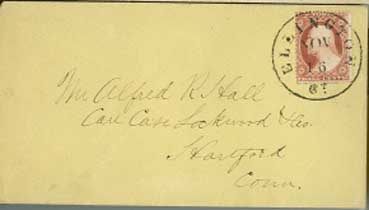 ELLINGTON
NOV
16
Ct
Mr Alfred R Hall
Care Case Lockwood & Co.
Hartford
Conn.